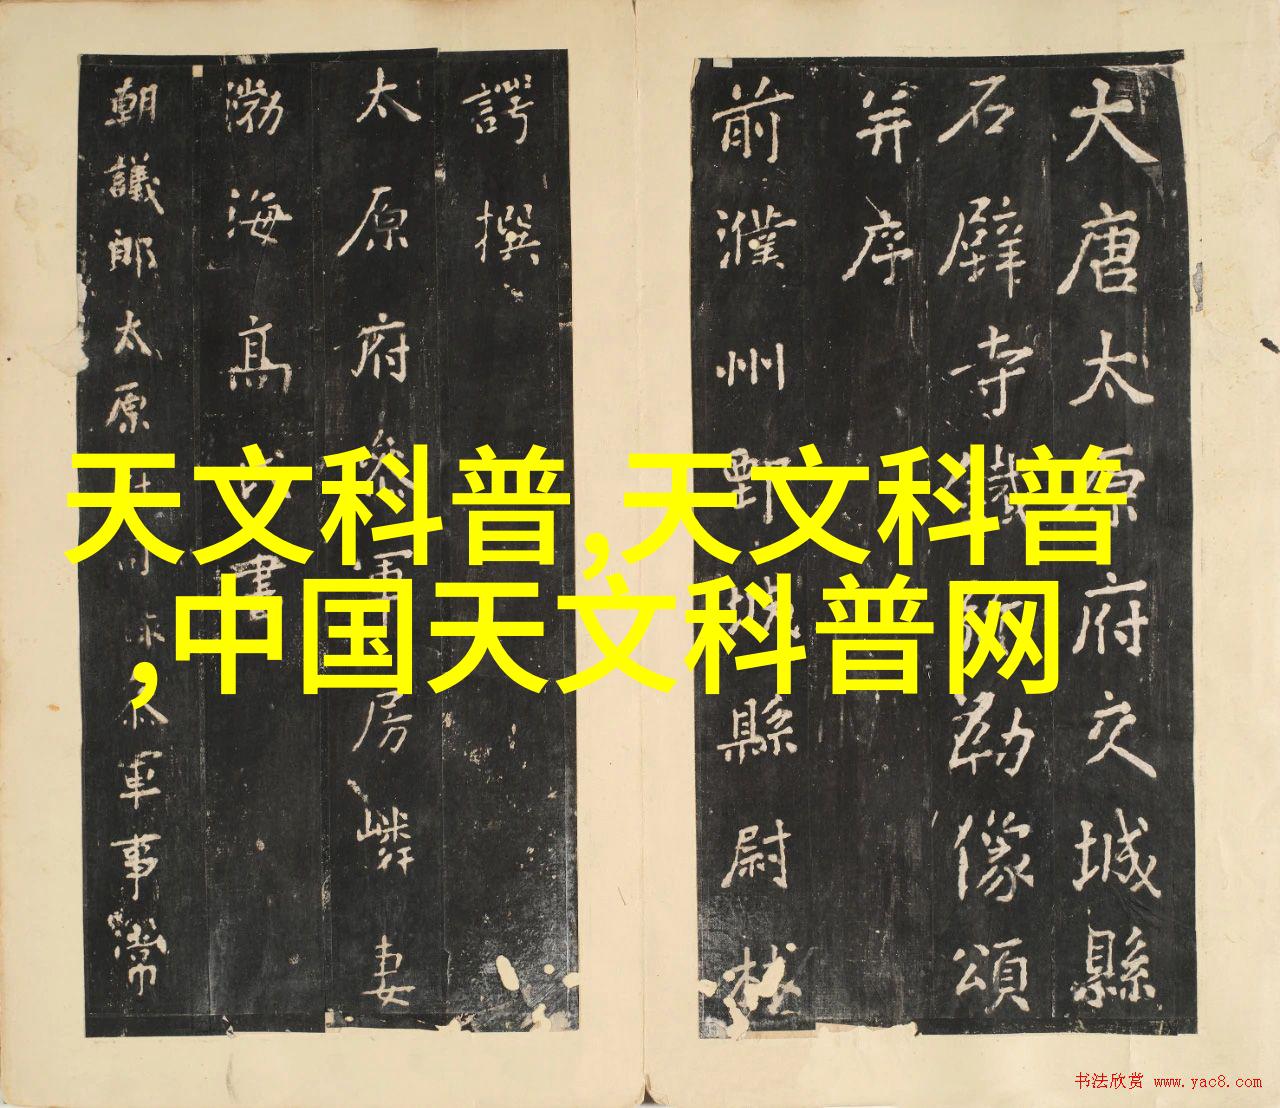 大唐太原府交城縣
石壁寺鐵弥勒像頌
并序
前濮州鄄城縣尉林
諤撰
太原府叅軍房嶙妻
渤海髙氏書
朝議郎太原
叅軍事常
天文科普,天文科普
,中国天文科普网
书法欣赏 www.yac8.com